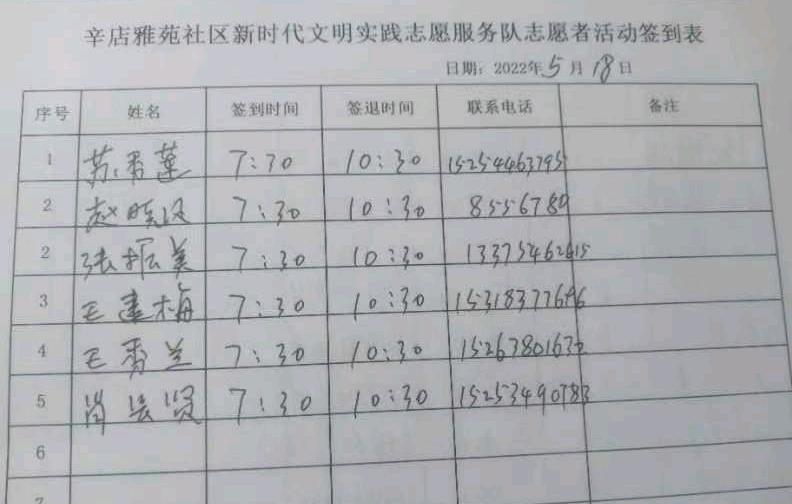 辛店雅苑社区新时代文明实践志愿服务队志愿者活动签到表
日期：2022年5月18日
序号 姓名 签到时间 签退时间 联系电话 备注
1 苏秀莲 7:30 10:30 15254463795
2 赵 7:30 10:30 8556780
2 张振美 7:30 10:30 13375462615
3 王建梅 7:30 10:30 15318377646
4 王秀兰 7:30 10:30 15263801632
5 7:30 10:30 15253490783
6
7